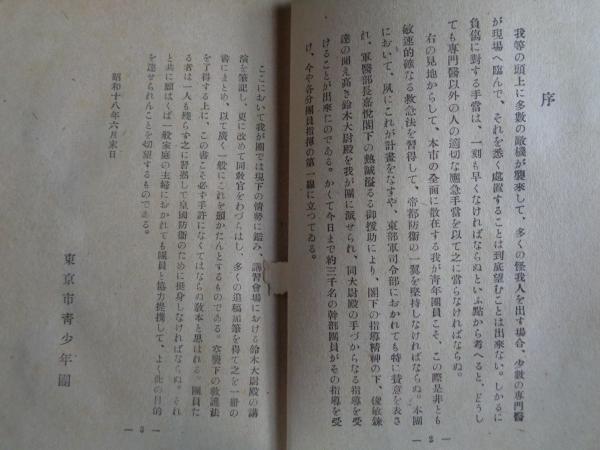 序
我等の頭上に多數の敵機が襲來して、多くの怪我人を出す場合、少數の專門醫
が現場へ臨んで、それを悉く處置することは到底望むことは出來ない。しかるに
負傷に對する手當は、一刻も早くなければならぬといふ點から考へると、どうし
ても專門醫以外の人の適切な應急手當を以て之に當らなければならぬ。
右の見地からして、本市の全面に散在する我が青年團員こそ、この際是非とも
敏速的確なる救急法を習得して、帝都防衞の一翼を堅持しなければならぬ。本團
において、夙にこれが計畫をなすや、東部軍司令部におかれても特に賛意を表さ
れ、軍醫部長嘉悅閣下の熱誠溢るる御援助により、閣下の指導精神の下、俊敏鍊
達の聞え高き鈴木大尉殿を我が團に派せられ、同大尉殿の手づからなる指導を受
けることが出來たのである。かくて今日まで約三千名の幹部團員がその指導を受
け、今や各分團員指揮の第一線に立つてゐる。
— 2 —
ここにおいて我が團では現下の情勢に鑑み、講習會場における鈴木大尉殿の講
演を筆記し、更に改めて同教官をわづらはし、多くの追稿加筆を得て之を一册の
書にまとめ、以て廣く一般にこれを頒かたんとするものである。空襲下の救護法
を了得する上に、この書こそ必ず手許になくてはならぬ敎本と思はれる。團員た
る者は一人も殘らず之に習熟して皇國防衞のために挺身しなければならぬ。それ
と共に願はくば一般家庭の主婦におかれても團員と協力提携して、よく此の目的
を達せられんことを切望するものである。
昭和十八年六月末日
東京市靑少年團
— 3 —